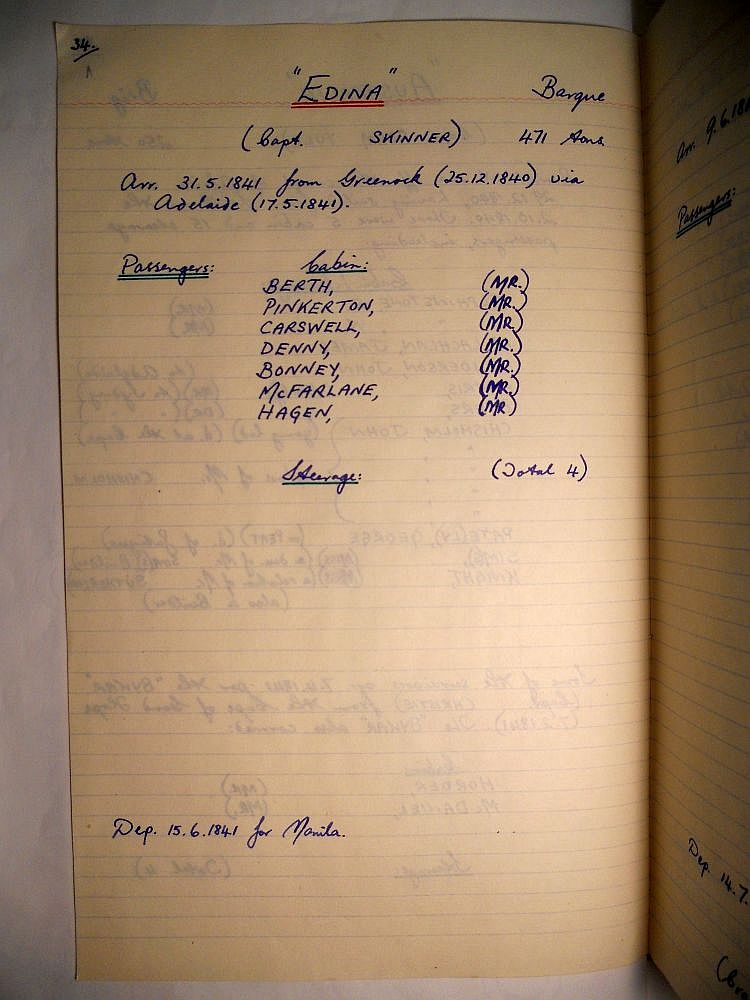 34.
"EDINA" Barque
(Capt. SKINNER) 471 tons
Arr. 31.5.1841 from Greenock (25.12.1840) via
Adelaide (17.5.1841).
Passengers: Cabin:
BERTH, (MR.)
PINKERTON, (MR.)
CARSWELL, (MR.)
DENNY, (MR.)
BONNEY, (MR.)
McFARLANE, (MR.)
HAGEN, (MR)
Steerage: (Total 4)
Dep. 15.6.1841 for Manila.
Arr. 9.6.184
Passengers:
Dep. 14.7.